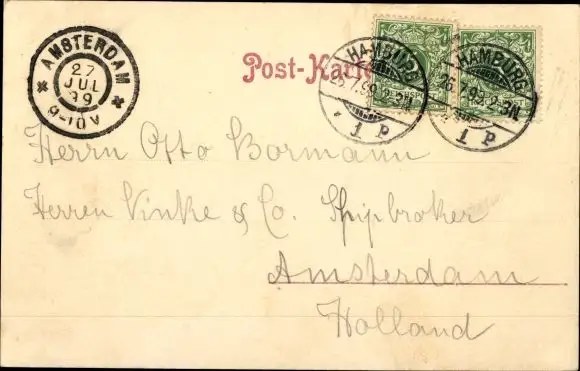 AMSTERDAM
27
JUL
99
9-10V
Post-Karte
HAMBURG
26.7.99.2-3N.
1 P
HAMBURG
26.7.99.2-3N.
1 P
Herrn Otto Bormann
Herren Vinke & Co. Shipbroker
Amsterdam
Holland